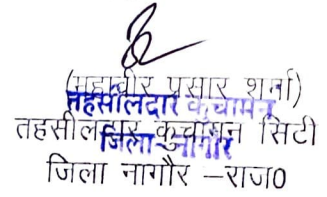 (महावीर प्रसार शर्मा)
तहसीलदार कुचामन
तहसीलदार कुचामन सिटी
जिला-नागौर
जिला नागौर –राज0